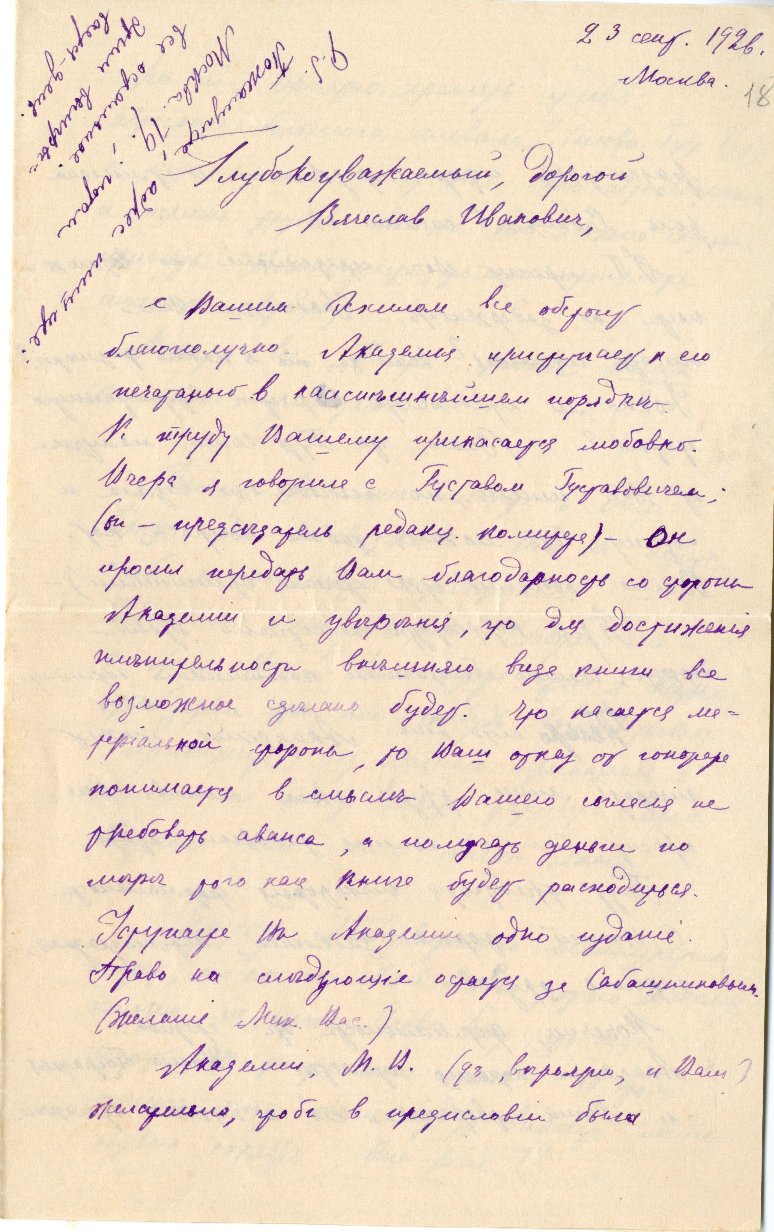 23 сент. 1926.
Москва.
18
P.S. Пожалуйста, адрес пишите:
Москва, 19,
все остальное
Глубокоуважаемый, дорогой
Вячеслав Иванович,
с Вашим Эсхилом все обстоит
благополучно. Академия приступает к его
печатанью в наиспѣшнѣйшем порядкѣ.
К труду Вашему прикасается любовно.
Вчера я говорила с Густавом Густавовичем;
(он – председатель редакц. комитета) – он
просил передать Вам благодарность со стороны
Академіи и увѣренія, что для достиженія
плѣнительности внѣшняго вида книги все
возможное сделано будет. Что касается ма-
теріальной стороны, то Ваш отказ от гонорара
понимается в смыслѣ Вашего согласія не
требовать аванса, а получать деньги по
мѣрѣ того как книга будет расходиться.
Уступаете Вы Академіи одно изданіе.
Право на слѣдующіе остается за Сабашниковым.
(желаніе Мих. Вас.)
Академіи, М. В. (да, вѣроятно, и Вам)
желательно, чтобы в предисловіи была